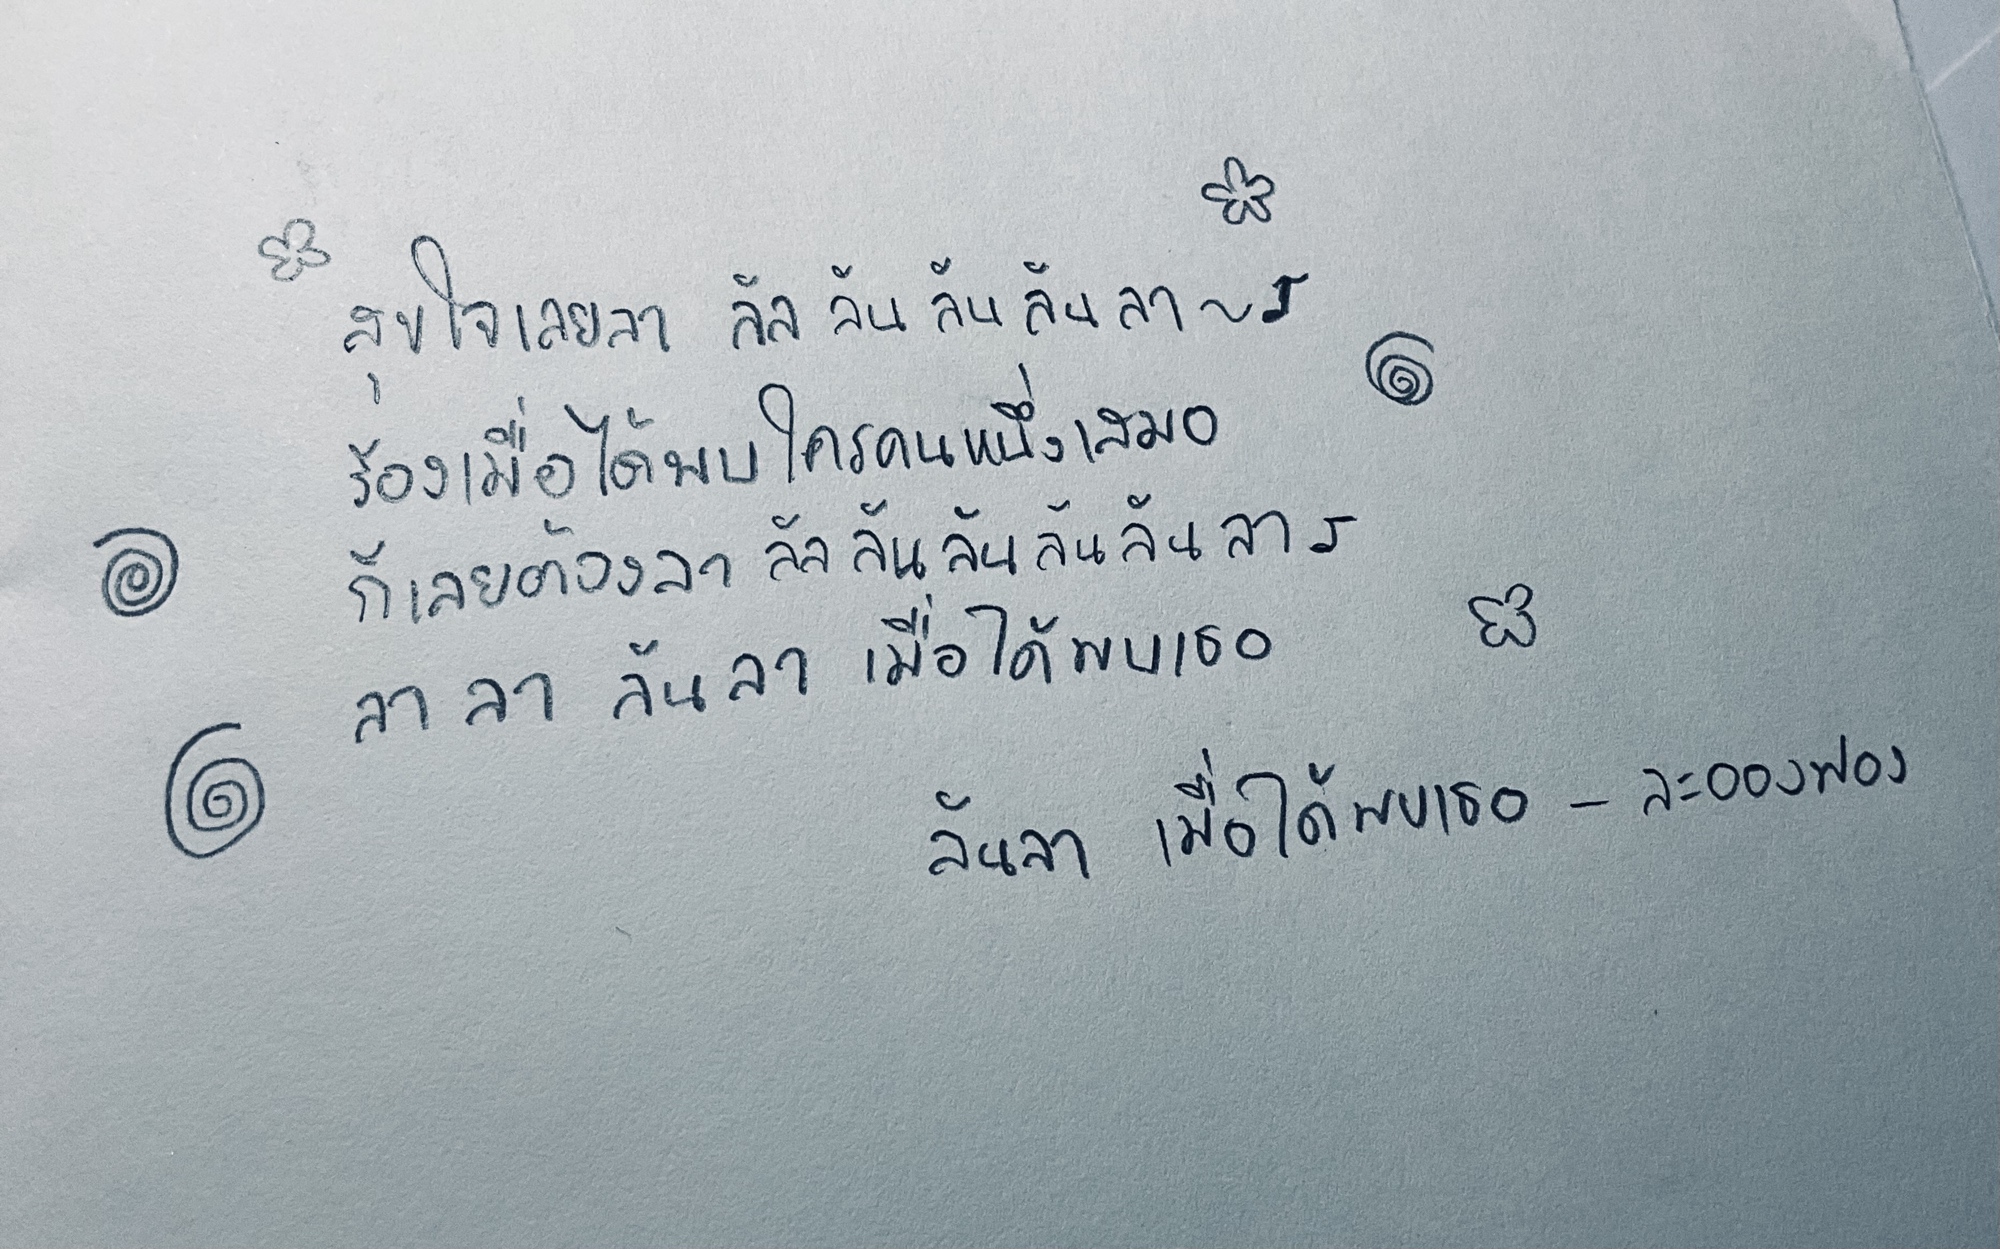 สุขใจเลยลา ลัล ลัน ลัน ลัน ลา ~
ร้องเมื่อได้พบใครคนหนึ่งเสมอ
ก็เลยต้องลา ลัล ลัน ลัน ลัน ลัน ลา
ลา ลา ลัน ลา เมื่อได้พบเธอ
ลันลา เมื่อได้พบเธอ - ละอองฟอง